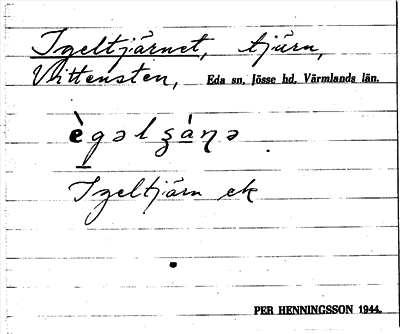 Igeltjärnet, tjärn,
Vittensten, Eda sn, Jösse hd, Värmlands län.
Igeltjärn ek
PER HENNINGSSON 1944.